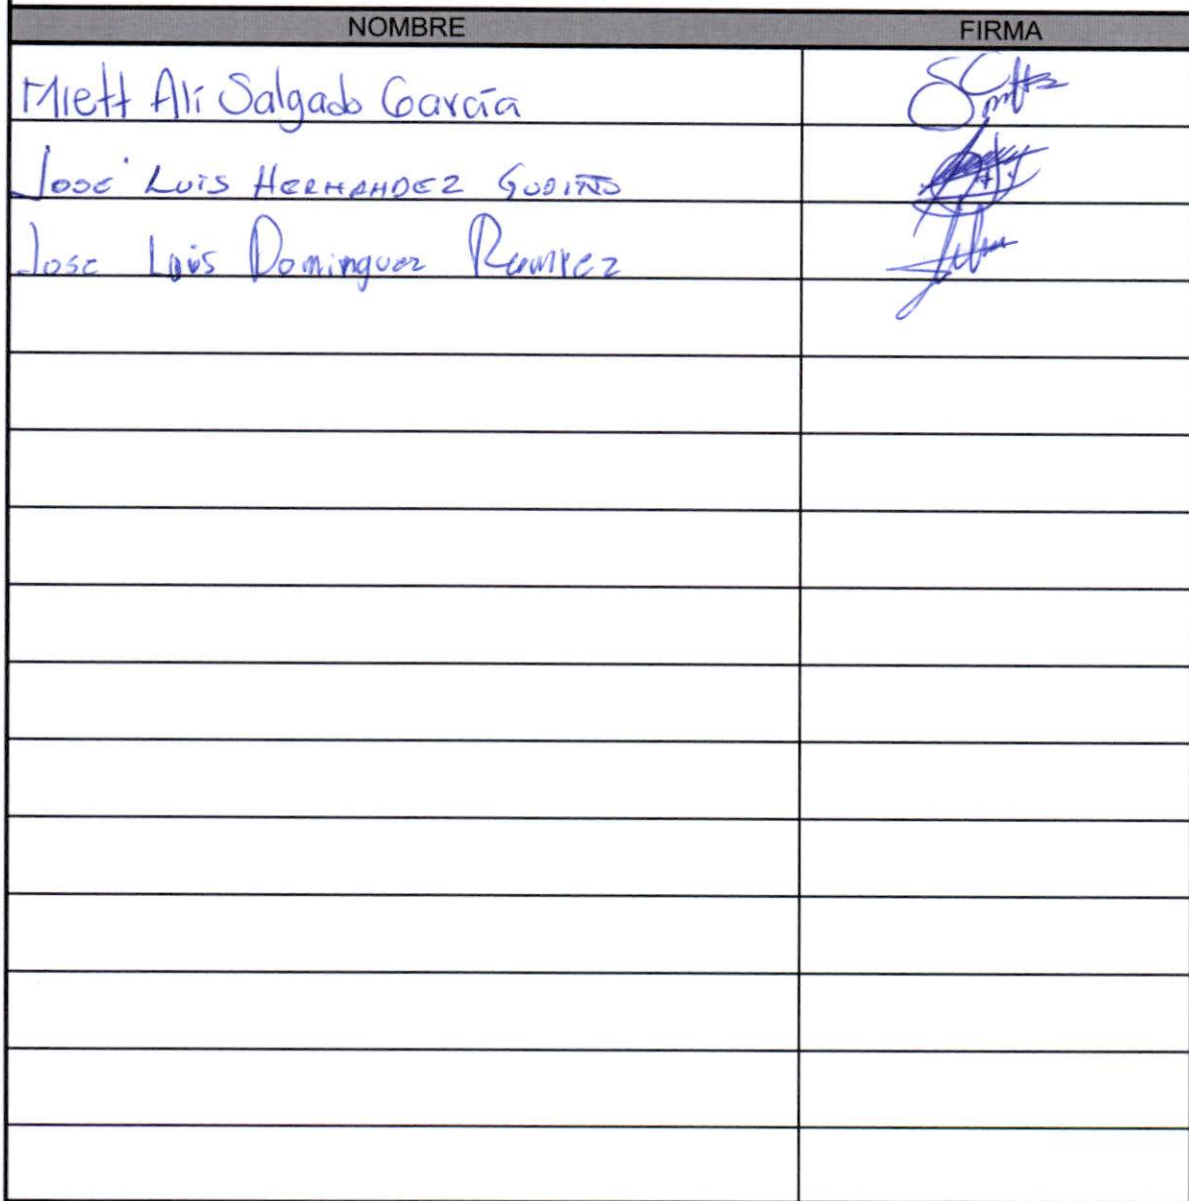 NOMBRE FIRMA
Miett Alí Salgado García
José Luis HERNANDEZ GUDIÑO
Jose Luis Dominguez Ramirez